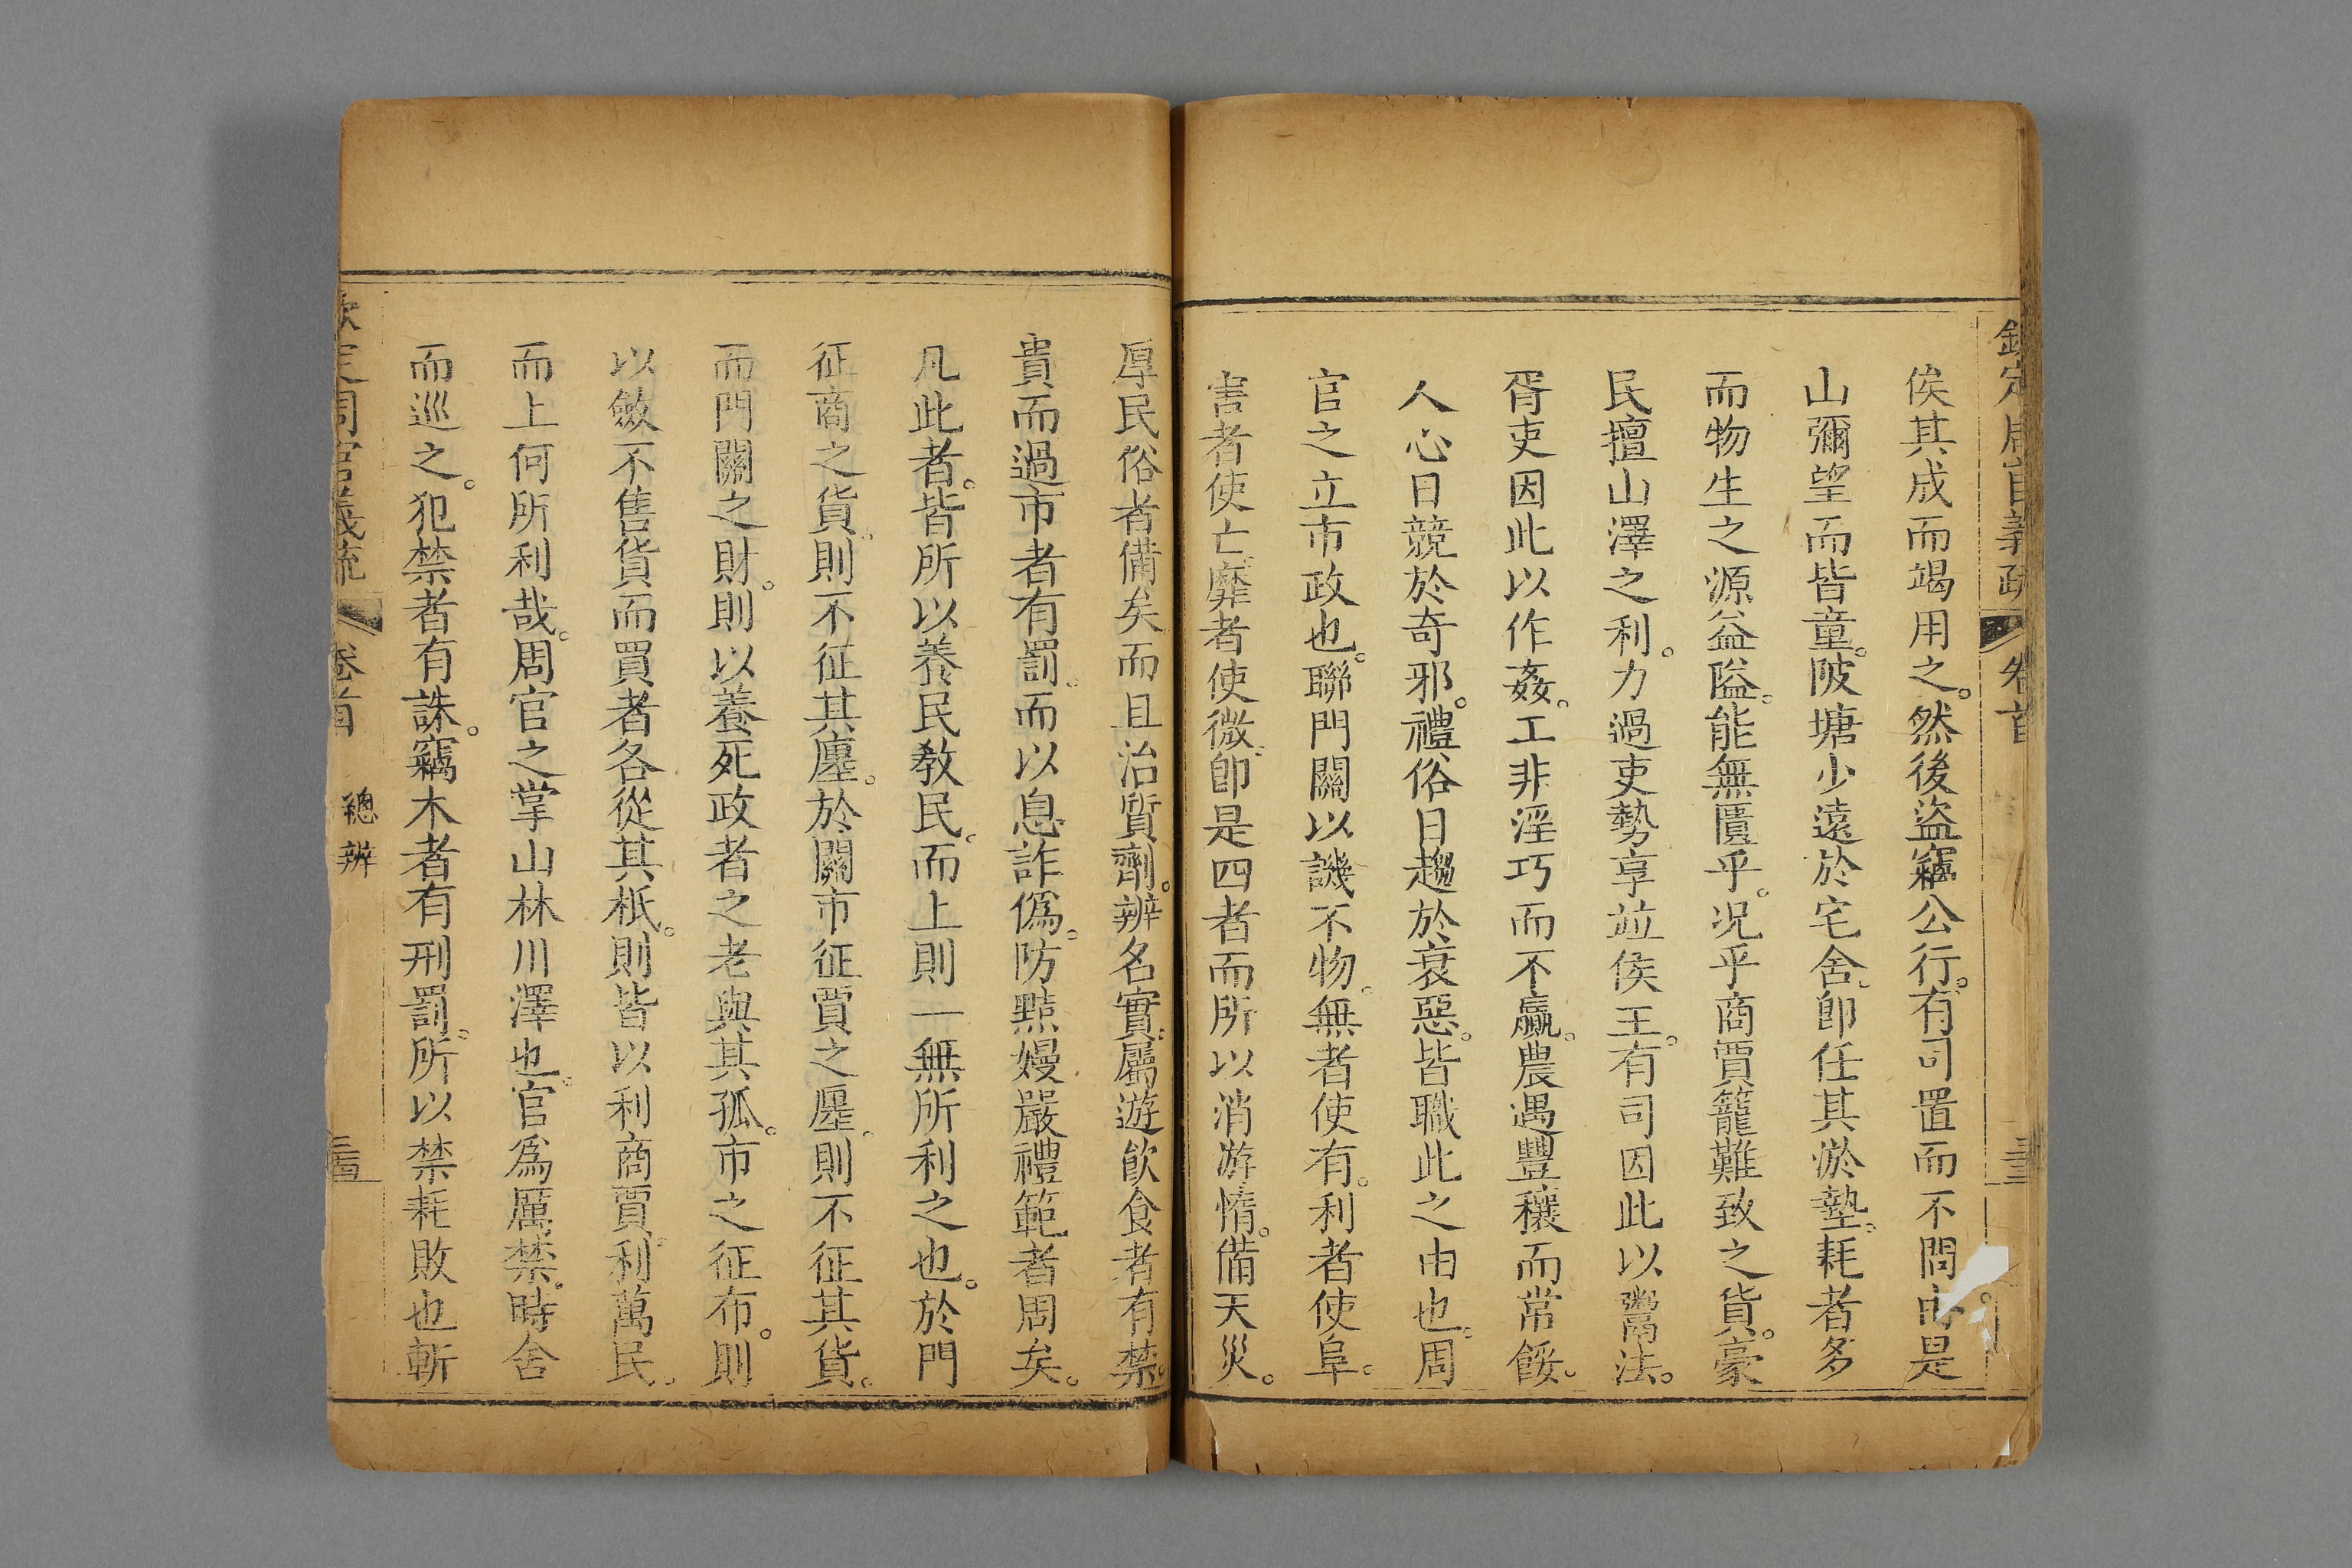 欽定周官義疏 卷首
俟其成而竭用之。然後盜竊公行。有司置而不問。由是
山彌望而皆童。陂塘少遠於宅舍。卽任其淤墊。耗者多
而物生之源益隘。能無匱乎。况乎商賈籠難致之貨。豪
民擅山澤之利。力過吏勢享竝侯王。有司因此以鬻法。
胥吏因此以作姦。工非淫巧而不贏。農遇豐穰而常餒。
人心日競於奇邪。禮俗日趨於衰惡。皆職此之由也。周
官之立市政也。聯門關以譏不物。無者使有。利者使阜。
害者使亡。靡者使微。卽是四者而所以消游惰。備天災。
厚民俗者備矣而且治質劑。辨名實。屬遊飮食者有禁。
貴而過市者有罰。而以息詐僞。防㸃嫚嚴禮範者周矣。
凡此者。皆所以養民教民。而上則一無所利之也。於門
征商之貨。則不征其廛。於關市征賈之廛。則不征其貨。
而門關之財。則以養死政者之老與其孤。市之征布。則
以斂不售貨而買者各從其柢。則皆以利商賈。利萬民。
而上何所利哉。周官之掌山林川澤也。官爲厲禁。時舍
而巡之。犯禁者有誅。竊木者有刑罰。所以禁耗敗也斬
欽定周官義疏 卷首 總辨